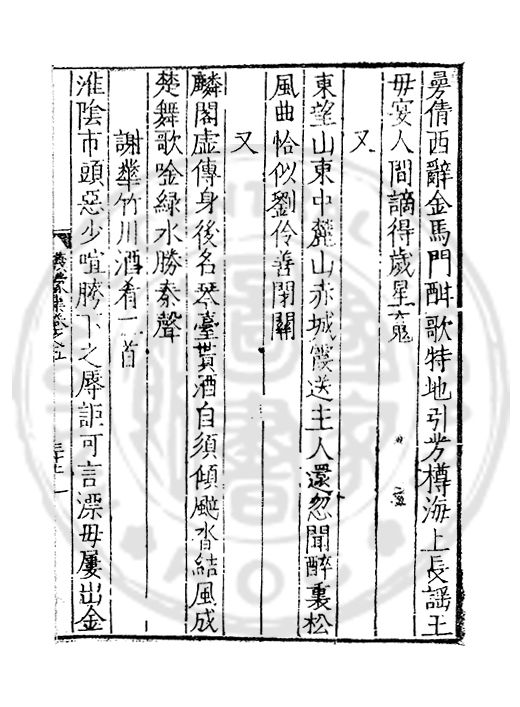 曼倩西辭金馬門酣歌特地引芳樽海上長謠王
母宴人間謫得歲星䰟
又
東望山東中麓山赤城霞送主人還忽聞醉裏松
風曲恰似劉伶善閉關
又
麟閣虛傳身後名琴臺貰酒自須傾飈沓結風成
楚舞歌唫綠水勝秦聲
謝華竹川酒肴二首
淮陰市頭惡少喧胯下之辱詎可言漂毋屢出金